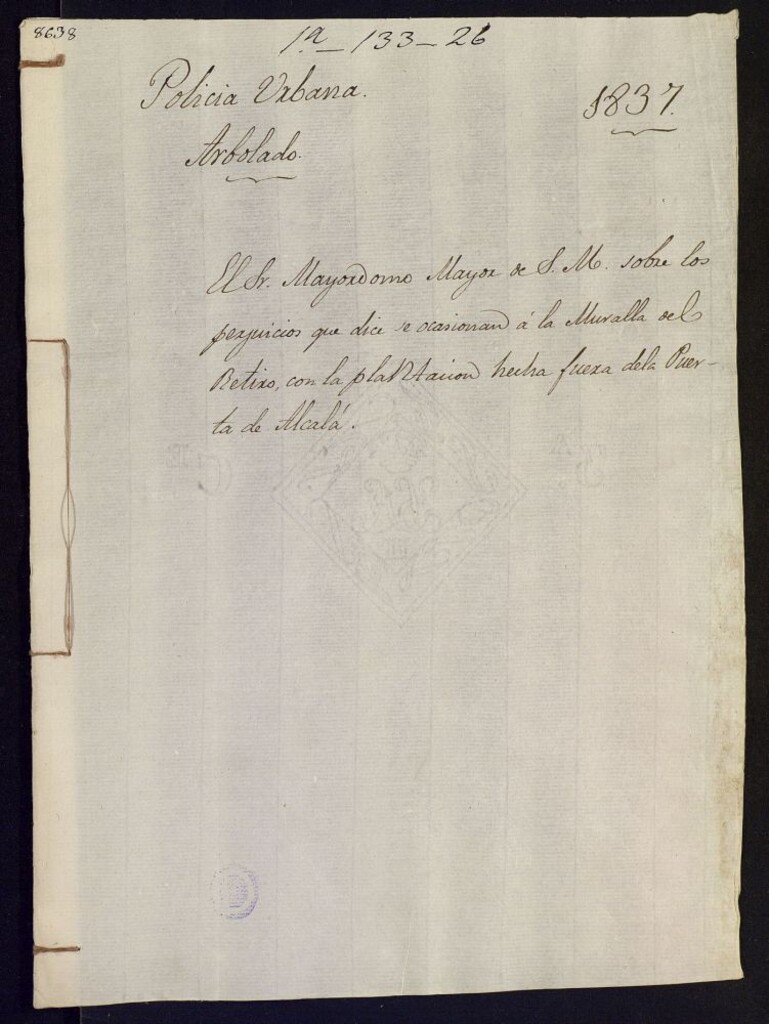 8638
1ª - 133 - 26
Policia Urbana.
1837.
Arbolado.
El Sr. Mayordomo Mayor de S. M. sobre los
perjuicios que dice se ocasionan á la Muralla del
Retiro, con la plantacion hecha fuera dela Puer-
ta de Alcalá.